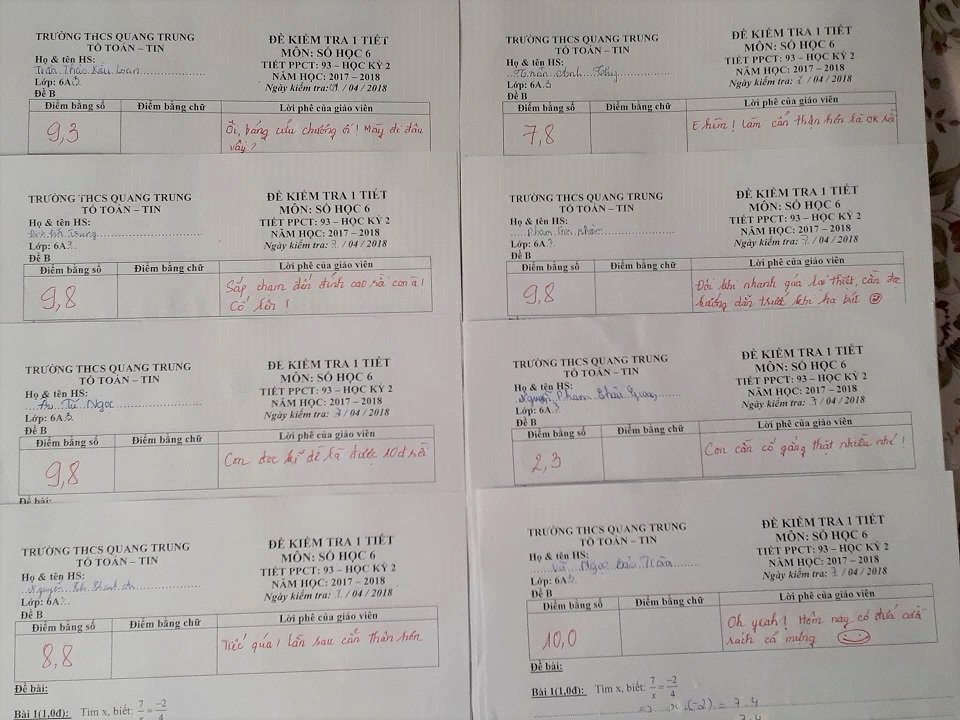 TRƯỜNG THCS QUANG TRUNG
TỔ TOÁN – TIN
Họ & tên HS:
Trần Thảo Loan
Lớp: 6A3
Đề B
ĐỀ KIỂM TRA 1 TIẾT
MÔN: SỐ HỌC 6
TIẾT PPCT: 93 – HỌC KỲ 2
NĂM HỌC: 2017 – 2018
Ngày kiểm tra: / 04 / 2018
Điểm bằng số Điểm bằng chữ Lời phê của giáo viên
9,3
Ối, báng cửu chương ơi! Mày đi đâu
vậy?
TRƯỜNG THCS QUANG TRUNG
TỔ TOÁN – TIN
Họ & tên HS:
Trần Anh Thy
Lớp: 6A3
Đề B
ĐỀ KIỂM TRA 1 TIẾT
MÔN: SỐ HỌC 6
TIẾT PPCT: 93 – HỌC KỲ 2
NĂM HỌC: 2017 – 2018
Ngày kiểm tra: 7 / 04 / 2018
Điểm bằng số Điểm bằng chữ Lời phê của giáo viên
7,8
E hèm! Làm cẩn thận hơn là OK rồi
TRƯỜNG THCS QUANG TRUNG
TỔ TOÁN – TIN
Họ & tên HS:
Trung
Lớp: 6A3
Đề B
ĐỀ KIỂM TRA 1 TIẾT
MÔN: SỐ HỌC 6
TIẾT PPCT: 93 – HỌC KỲ 2
NĂM HỌC: 2017 – 2018
Ngày kiểm tra: 7 / 04 / 2018
Điểm bằng số Điểm bằng chữ Lời phê của giáo viên
9,8
Sắp chạm đến đỉnh cao rồi con ạ!
Cố lên!
TRƯỜNG THCS QUANG TRUNG
TỔ TOÁN – TIN
Họ & tên HS:
Phạm
Lớp: 6A3
Đề B
ĐỀ KIỂM TRA 1 TIẾT
MÔN: SỐ HỌC 6
TIẾT PPCT: 93 – HỌC KỲ 2
NĂM HỌC: 2017 – 2018
Ngày kiểm tra: 7 / 04 / 2018
Điểm bằng số Điểm bằng chữ Lời phê của giáo viên
9,8
Đôi khi nhanh quá lại thiệt, cần đọc
hướng dẫn trước khi hạ bút
TRƯỜNG THCS QUANG TRUNG
TỔ TOÁN – TIN
Họ & tên HS:
Tú Ngọc
Lớp: 6A3
Đề B
ĐỀ KIỂM TRA 1 TIẾT
MÔN: SỐ HỌC 6
TIẾT PPCT: 93 – HỌC KỲ 2
NĂM HỌC: 2017 – 2018
Ngày kiểm tra: 7 / 04 / 2018
Điểm bằng số Điểm bằng chữ Lời phê của giáo viên
9,8
Con đọc kĩ đề là được 10đ rồi
Đề bài:
TRƯỜNG THCS QUANG TRUNG
TỔ TOÁN – TIN
Họ & tên HS:
Nguyễn Phạm Châu Giang
Lớp: 6A3
Đề B
ĐỀ KIỂM TRA 1 TIẾT
MÔN: SỐ HỌC 6
TIẾT PPCT: 93 – HỌC KỲ 2
NĂM HỌC: 2017 – 2018
Ngày kiểm tra: 7 / 04 / 2018
Điểm bằng số Điểm bằng chữ Lời phê của giáo viên
2,3
Con cần cố gắng thật nhiều nhé!
TRƯỜNG THCS QUANG TRUNG
TỔ TOÁN – TIN
Họ & tên HS:
Nguyễn
Lớp: 6A3
Đề B
ĐỀ KIỂM TRA 1 TIẾT
MÔN: SỐ HỌC 6
TIẾT PPCT: 93 – HỌC KỲ 2
NĂM HỌC: 2017 – 2018
Ngày kiểm tra: 7 / 04 / 2018
Điểm bằng số Điểm bằng chữ Lời phê của giáo viên
8,8
Tiếc quá! lần sau cẩn thận hơn
Đề bài:
Bài 1(1,0đ): Tìm x, biết: 7/x = -2/4
TRƯỜNG THCS QUANG TRUNG
TỔ TOÁN – TIN
Họ & tên HS:
Vũ Ngọc Bảo Trân
Lớp: 6A3
Đề B
ĐỀ KIỂM TRA 1 TIẾT
MÔN: SỐ HỌC 6
TIẾT PPCT: 93 – HỌC KỲ 2
NĂM HỌC: 2017 – 2018
Ngày kiểm tra: 7 / 04 / 2018
Điểm bằng số Điểm bằng chữ Lời phê của giáo viên
10,0
Oh yeah! Hôm nay có đứa cười
rách cả miệng
Đề bài:
Bài 1(1,0đ): Tìm x, biết: 7/x = -2/4
=> x.(-2) = 7.4
7.4